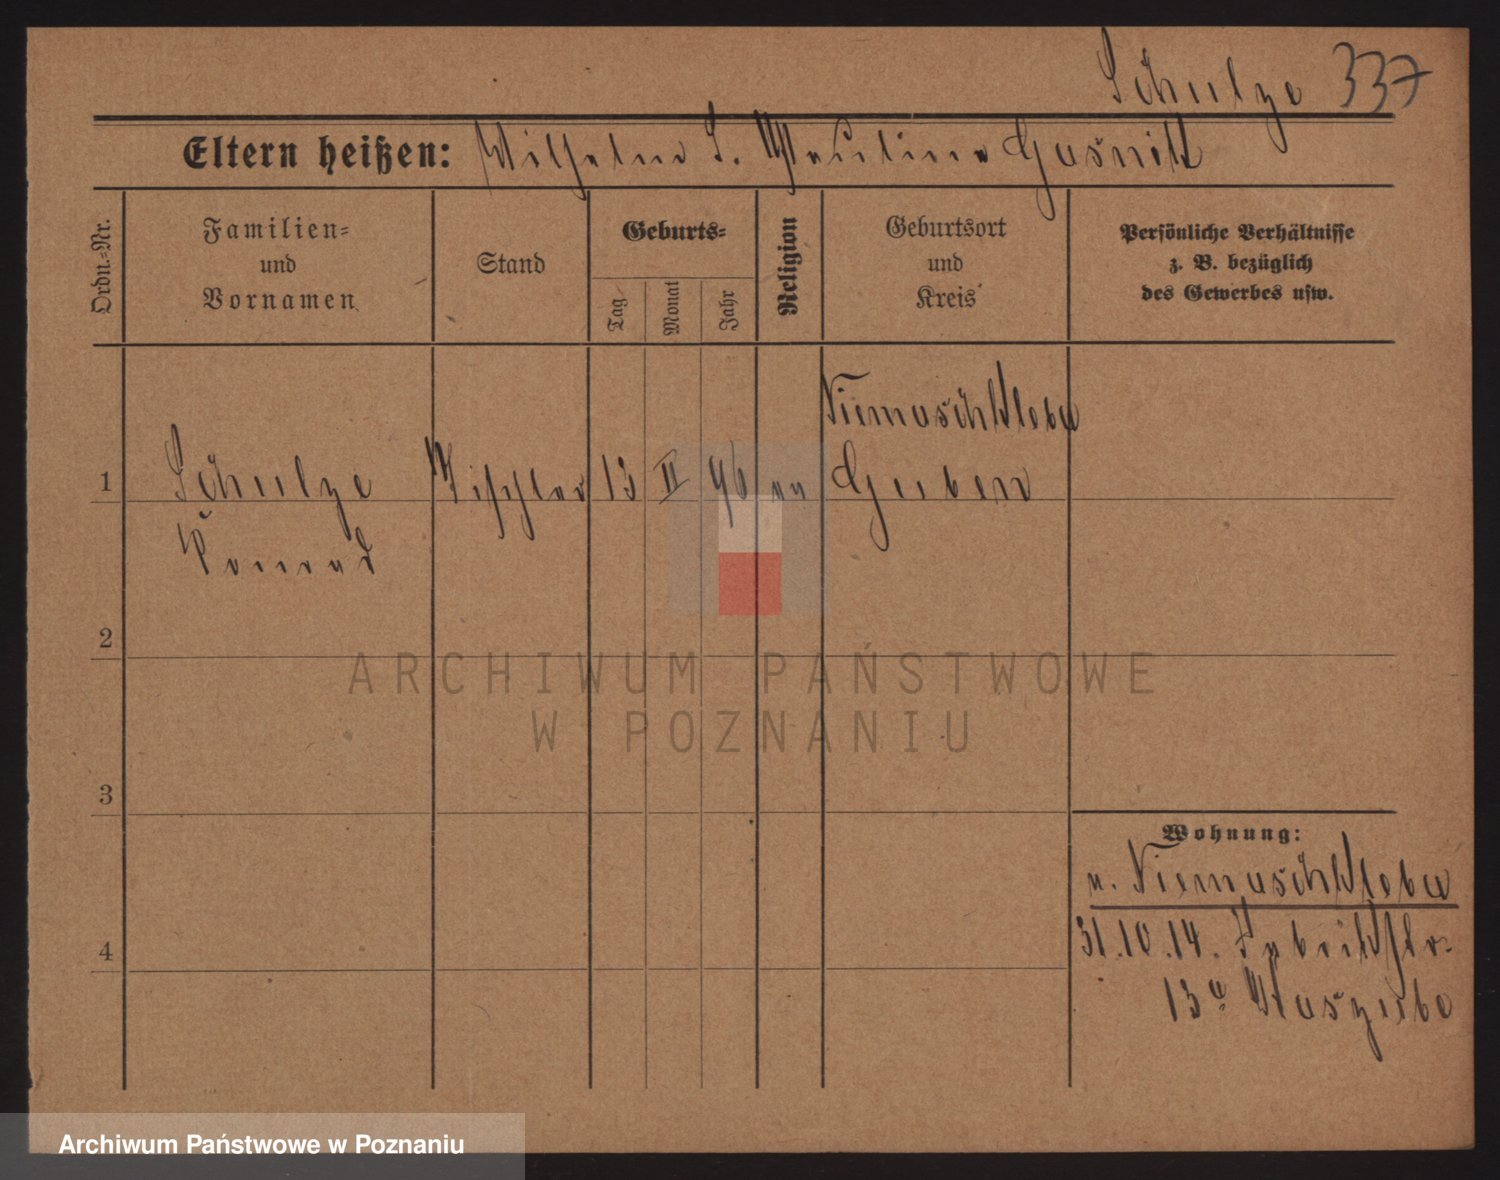 Schulze 337
Eltern heißen: Wilhelm S. Pauline Gasnick
Ordn.-Nr.
Familien-
und
Vornamen
Stand
Geburts-
Tag
Monat
Jahr
Religion
Geburtsort
und
Kreis
Persönliche Verhältnisse
z. B. bezüglich
des Gewerbes usw.
Niemaschkleba
1 Schulze Tischler 13 II 96 ev Guben
Konrad
2
3
4
Wohnung:
v. Niemaschkleba
31.10.14. Fabrikstr.
13a
ARCHIWUM PAŃSTWOWE
W POZNANIU
Archiwum Państwowe w Poznaniu